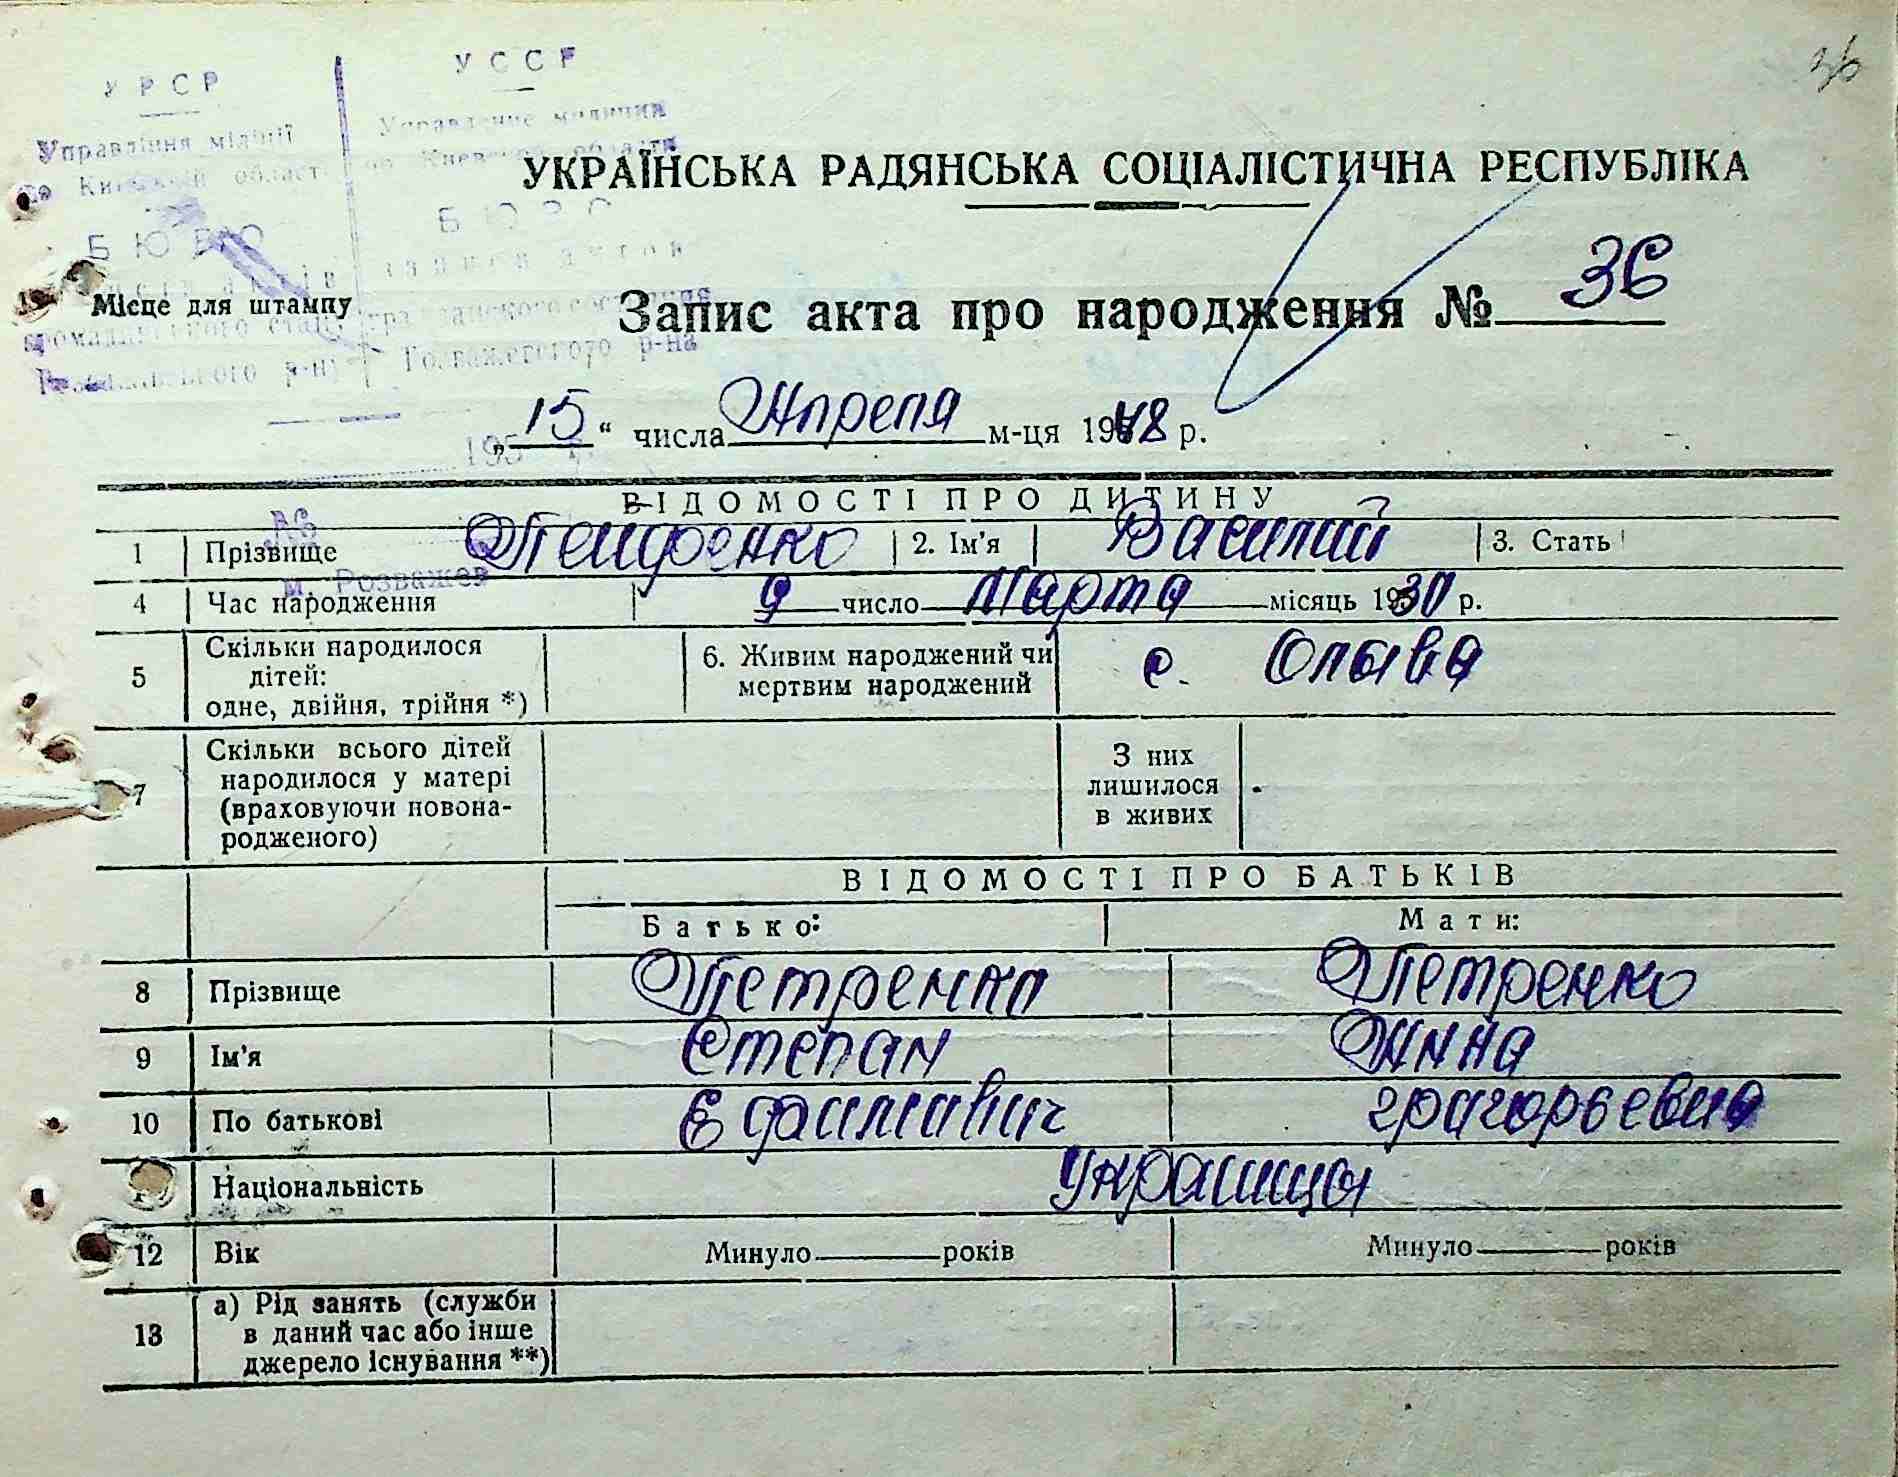 36
УРСР
УССР
Управління міліції
Управление милиции
по Київській області
по Киевской области
БЮРО
БЮРО
записів актів
записи актов
громадянського стану
гражданского состояния
Розважівського р-ну
Розважевского р-на
195
№
м. Розважев
УКРАЇНСЬКА РАДЯНСЬКА СОЦІАЛІСТИЧНА РЕСПУБЛІКА
Місце для штампу
Запис акта про народження № 36
„15“ числа Апреля м-ця 1948 р.
ВІДОМОСТІ ПРО ДИТИНУ
1 Прізвище Петренко 2. Ім’я Василий 3. Стать
4 Час народження 9 число Марта місяць 1930 р.
5 Скільки народилося дітей: одне, двійня, трійня *) 6. Живим народжений чи мертвим народжений с. Олыва
7 Скільки всього дітей народилося у матері (враховуючи новонародженого) З них лишилося в живих
ВІДОМОСТІ ПРО БАТЬКІВ
Батько: Мати:
8 Прізвище Петренко Петренко
9 Ім’я Степан Анна
10 По батькові Ефимович Григорьевна
Національність Украинцы
12 Вік Минуло років Минуло років
13 а) Рід занять (служби в даний час або інше джерело існування **)